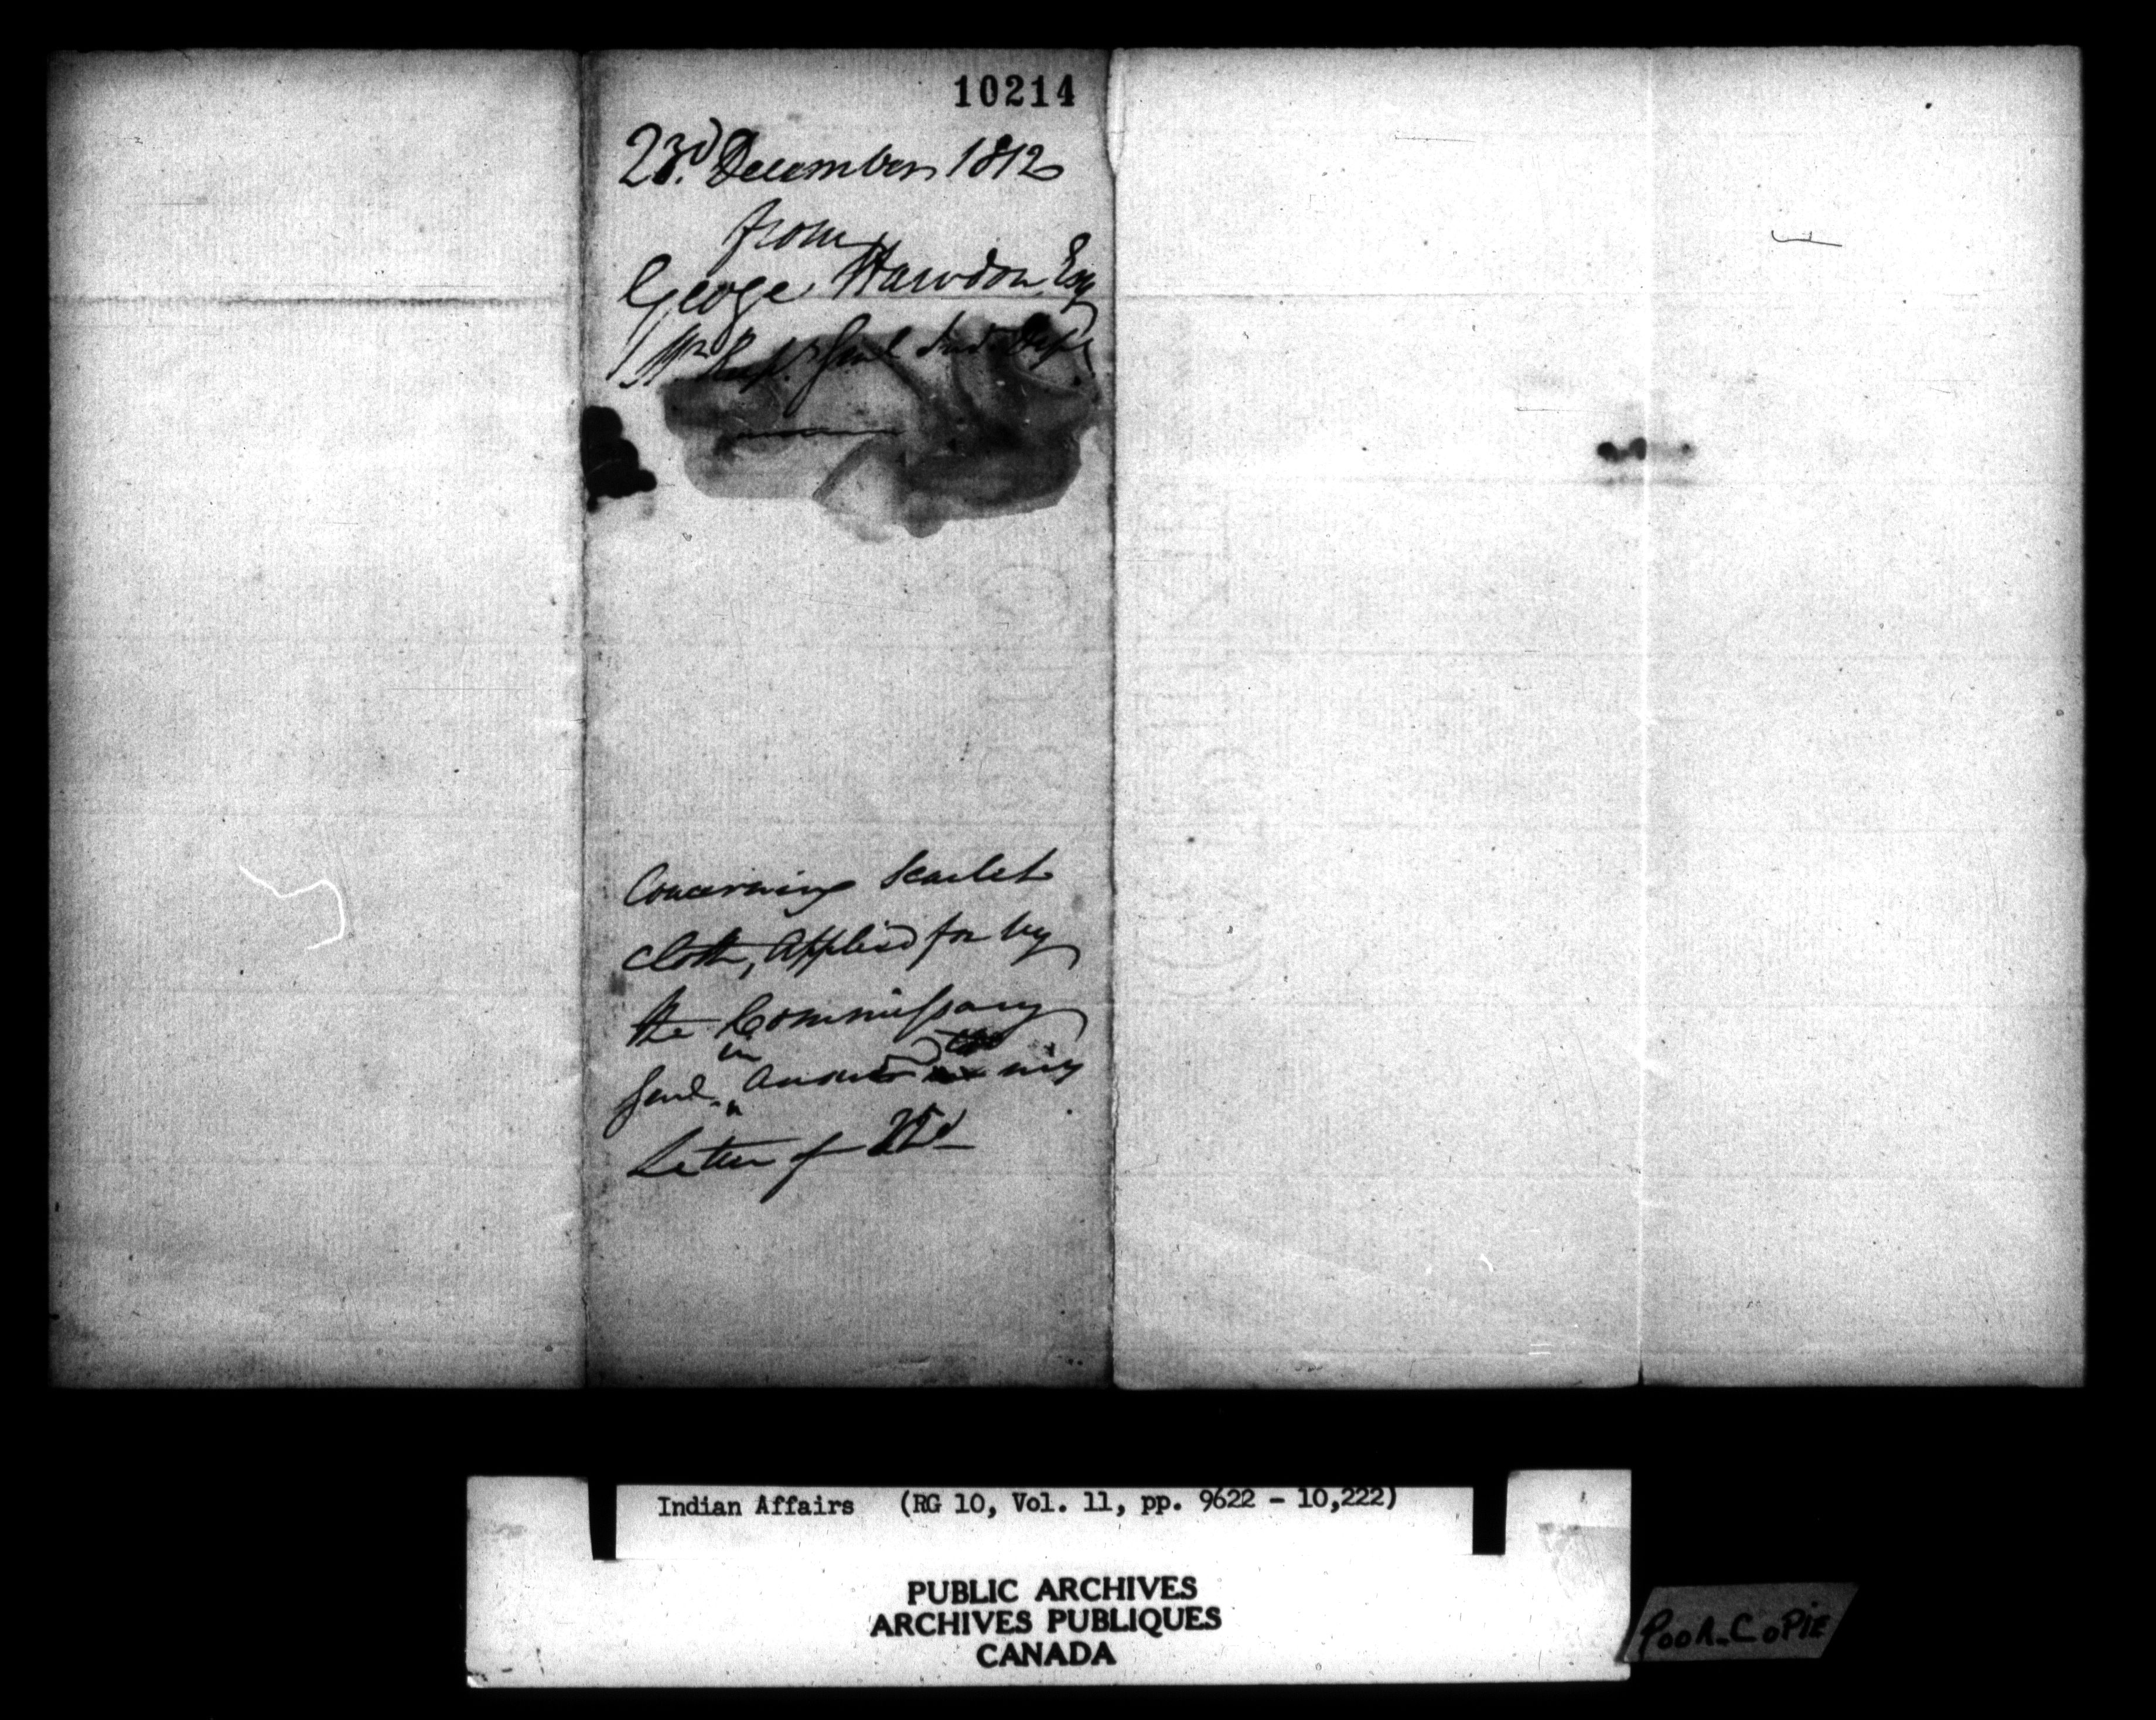 10214
23d. December 1812
from
George Hawdon Esqr
Genl Ind Dept
Concerning Scarlet
Cloth, Applied for by
the Commissary
Genl. in answer my
Letter of
Indian Affairs (RG 10, Vol. 11, pp. 9622 - 10,222)
PUBLIC ARCHIVES
ARCHIVES PUBLIQUES
CANADA
POOR-COPIE